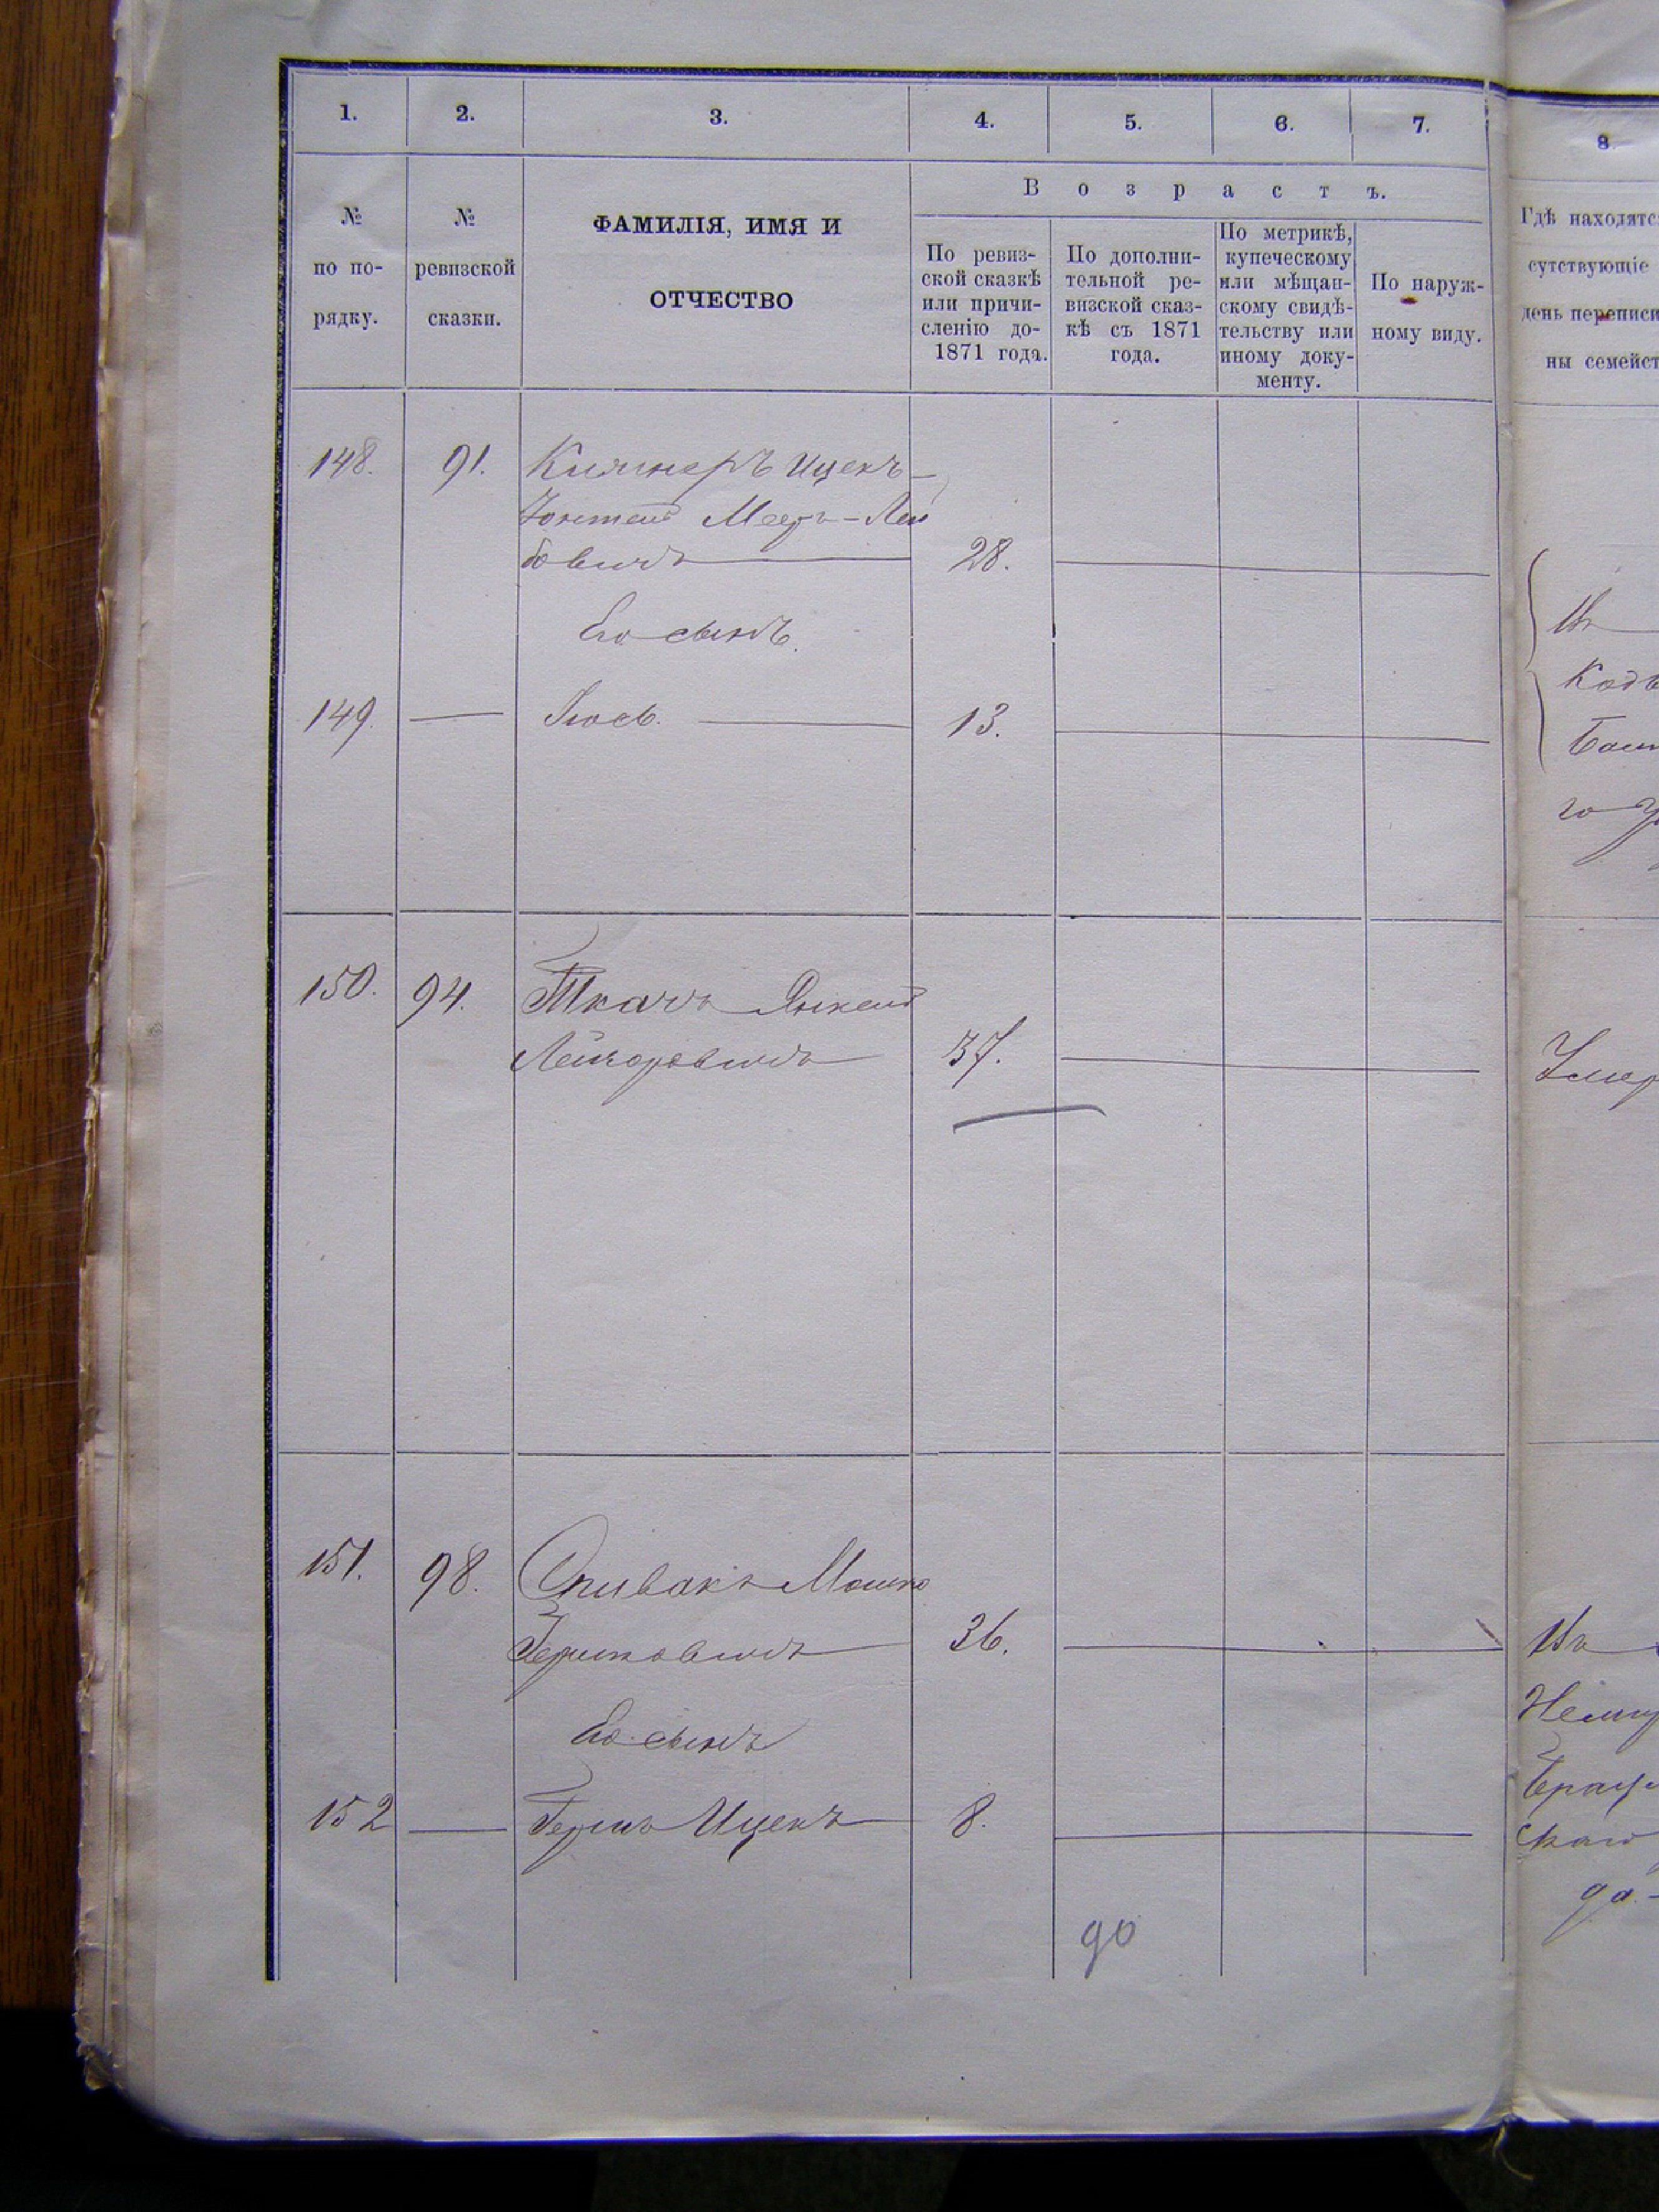 1. 2. 3. 4. 5. 6. 7. 8.
Возрастъ.
№ по по-рядку.
№ ревизской сказки.
ФАМИЛІЯ, ИМЯ И
ОТЧЕСТВО
По ревиз-
ской сказкѣ
или причи-
сленію до-
1871 года.
По дополни-
тельной ре-
визской сказ-
кѣ съ 1871
года.
По метрикѣ,
купеческому
или мѣщан-
скому свидѣ-
тельству или
иному доку-
менту.
По наруж-
ному виду.
Гдѣ находятс
сутствующіе
день переписи
ны семейст
148. 91. Ицекъ-
Меер-Лей
бовичъ 28.
Его сынъ.
149. Іось. 13.
150. 94. Ткачъ Янкель
Лейзоровичъ 37.
Умер
151. 98. Спивакъ Мошко
Гершковичъ 36.
Въ
Неми
Его сынъ
Брац
152 Гершъ Ицекъ 8.
скаго
да.-
90